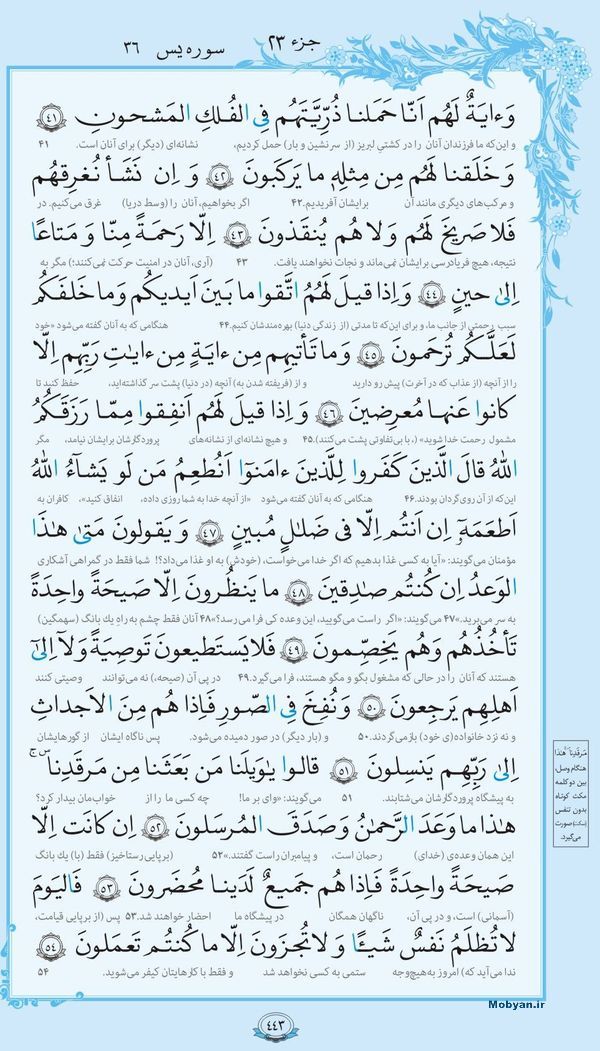 جزء ۲۳
سوره یس ۳۶
وَءایَةٌ لَهُم اَنّا حَمَلنا ذُرِّیَّتَهُم فِی الفُلكِ المَشحونِ ﴿۴۱﴾
و این‌که ما فرزندان آنان را در کشتیِ لبریز (از سرنشین و بار) حمل کردیم، نشانه‌ای (دیگر) برای آنان است. ۴۱
وَ خَلَقنا لَهُم مِن مِثلِهٖ ما یَركَبونَ ﴿۴۲﴾ وَ اِن نَشَأ نُغرِقهُم
و مرکب‌های دیگری مانند آن برایشان آفریدیم. ۴۲ اگر بخواهیم، آنان را (وسط دریا) غرق می‌کنیم. در
فَلا صَریخَ لَهُم وَ لا هُم یُنقَذونَ ﴿۴۳﴾ اِلّا رَحمَةً مِنّا وَ مَتاعًا
نتیجه، هیچ فریادرسی برایشان نمی‌ماند و نجات نخواهند یافت. ۴۳ (آری، آنان در امنیت حرکت نمی‌کنند؛) مگر به
اِلیٰ حینٍ ﴿۴۴﴾ وَ اِذا قیلَ لَهُمُ اتَّقوا ما بَینَ اَیدیكُم وَ ما خَلفَكُم
سبب رحمتی از جانب ما، و برای این‌که تا مدتی (از زندگی دنیا) بهره‌مندشان کنیم. ۴۴ هنگامی که به آنان گفته می‌شود «خود
لَعَلَّكُم تُرحَمونَ ﴿۴۵﴾ وَ ما تَأتیهِم مِن ءایَةٍ مِن ءایٰتِ رَبِّهِم اِلّا
را از آنچه (از عذاب که در آخرت) پیش رو دارید و از (فریفته شدن به) آنچه (در دنیا) پشت سر گذاشته‌اید، حفظ کنید تا
كانوا عَنها مُعرِضینَ ﴿۴۶﴾ وَ اِذا قیلَ لَهُم اَنفِقوا مِمّا رَزَقَكُمُ
مشمول رحمت خدا شوید» (، با بی‌تفاوتی پشت می‌کنند). ۴۵ و هیچ نشانه‌ای از نشانه‌های پروردگارشان برایشان نیامد، مگر
اللّٰهُ قالَ الَّذینَ كَفَروا لِلَّذینَ ءامَنوٓا اَنُطعِمُ مَن لَو یَشآءُ اللّٰهُ
این‌که از آن روی‌گردان بودند. ۴۶ هنگامی که به آنان گفته می‌شود «از آنچه خدا به شما روزی داده، انفاق کنید»، کافران به
اَطعَمَهٗٓ اِن اَنتُم اِلّا فی ضَلٰلٍ مُبینٍ ﴿۴۷﴾ وَ یَقولونَ مَتیٰ هٰذَا
مؤمنان می‌گویند: «آیا به کسی غذا بدهیم که اگر خدا می‌خواست، (خودش) به او غذا می‌داد؟! شما فقط در گمراهی آشکاری
الوَعدُ اِن كُنتُم صٰدِقینَ ﴿۴۸﴾ ما یَنظُرونَ اِلّا صَیحَةً واحِدَةً
به سر می‌برید.» ۴۷ می‌گویند: «اگر راست می‌گویید، این وعده کی فرا می‌رسد؟» ۴۸ آنان فقط چشم به راهِ یك بانگ (سهمگین)
تَأخُذُهُم وَ هُم یَخِصِّمونَ ﴿۴۹﴾ فَلا یَستَطیعونَ تَوصِیَةً وَ لآ اِلیٰٓ
هستند که آنان را در حالی که مشغول بگو و مگو هستند، فرا می‌گیرد. ۴۹ در پی آن (صیحه)، نه می‌توانند وصیتی کنند
اَهلِهِم یَرجِعونَ ﴿۵۰﴾ وَ نُفِخَ فِی الصّورِ فَاِذا هُم مِنَ الاَجداثِ
و نه نزد خانواده‌(ی خود) بازمی‌گردند. ۵۰ و (بار دیگر) در صور دمیده می‌شود. پس ناگاه ایشان از گورهایشان
اِلیٰ رَبِّهِم یَنسِلونَ ﴿۵۱﴾ قالوا یٰوَیلَنا مَن بَعَثَنا مِن مَرقَدِنا ۜ ۚ
به پیشگاه پروردگارشان می‌شتابند. ۵۱ می‌گویند: «وای بر ما! چه کسی ما را از خوابمان بیدار کرد؟
هٰذا ما وَعَدَ الرَّحمٰنُ وَ صَدَقَ المُرسَلونَ ﴿۵۲﴾ اِن كانَت اِلّا
این همان وعده‌ی (خدای) رحمان است، و پیامبران راست گفتند.» ۵۲ (برپایی رستاخیز) فقط (با) یك بانگ
صَیحَةً واحِدَةً فَاِذا هُم جَمیعٌ لَدَینا مُحضَرونَ ﴿۵۳﴾ فَالیَومَ
(آسمانی) است، و در پی آن، ناگهان همگان در پیشگاه ما احضار خواهند شد. ۵۳ پس (از برپایی قیامت،
لا تُظلَمُ نَفسٌ شَیئًا وَ لا تُجزَونَ اِلّا ما كُنتُم تَعمَلونَ ﴿۵۴﴾
ندا می‌آید که) امروز به‌هیچ‌وجه ستمی به کسی نخواهد شد و فقط با کارهایتان کیفر می‌شوید. ۵۴
مَرقَدِنا ۜ هٰذا
هنگام وصل،
بین دو کلمه
مکث کوتاه
بدون تنفس
(سکت) صورت
می‌گیرد.
Mobyan.ir
۴۴۳